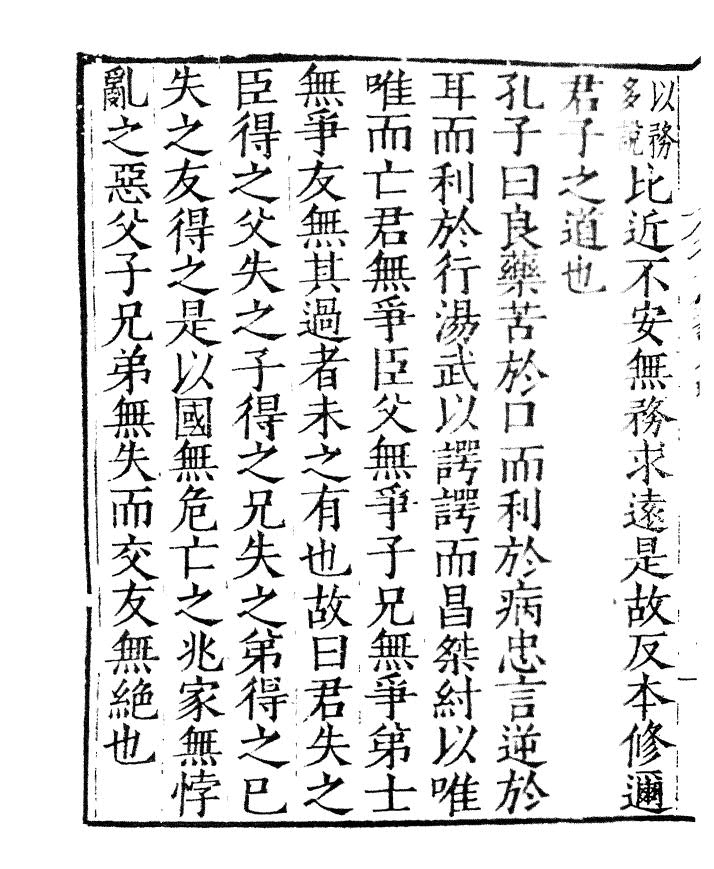 以務
多說
比近不安無務求遠是故反本修邇
君子之道也
孔子曰良藥苦於口而利於病忠言逆於
耳而利於行湯武以諤諤而昌桀紂以唯
唯而亡君無爭臣父無爭子兄無爭第士
無爭友無其過者未之有也故曰君失之
臣得之父失之子得之兄失之第得之已
失之友得之是以國無危亡之兆家無悖
亂之惡父子兄弟無失而交友無絶也